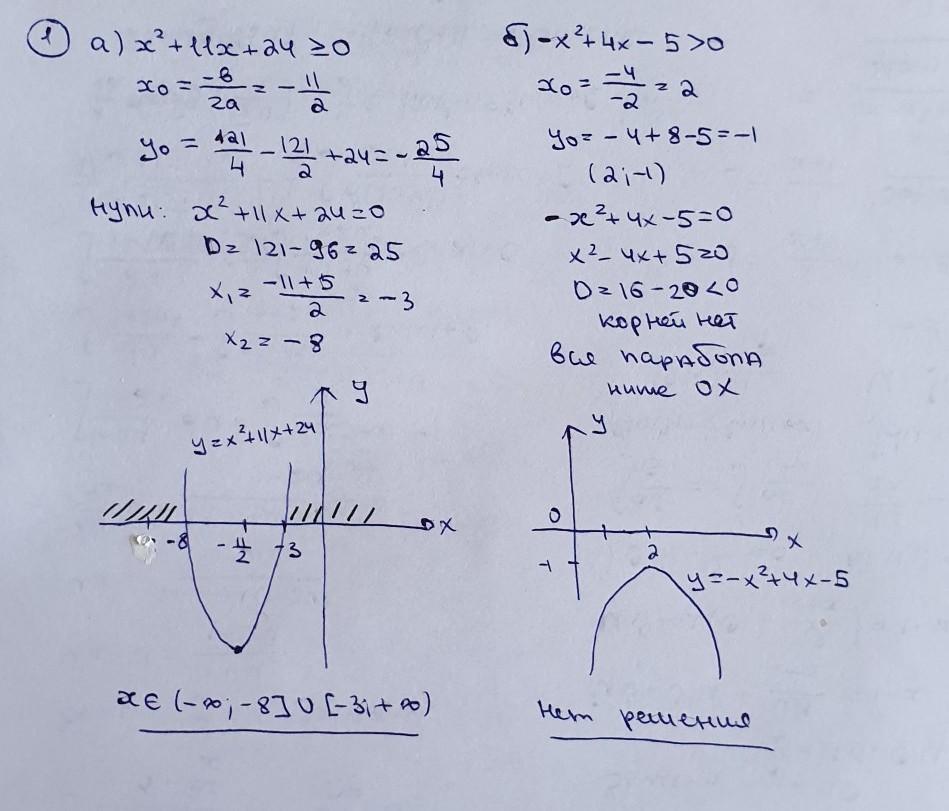 ① а) x² + 11x + 24 ≥ 0
x₀ = -в/2a = - 11/2
y₀ = 121/4 - 121/2 + 24 = - 25/4
нули: x² + 11x + 24 = 0
D = 121 - 96 = 25
x₁ = (-11 + 5)/2 = -3
x₂ = -8
y
y = x² + 11x + 24
x
-8 - 11/2 -3
x ∈ (-∞; -8] ∪ [-3; +∞)
б) -x² + 4x - 5 > 0
x₀ = -4/-2 = 2
y₀ = -4 + 8 - 5 = -1
(2; -1)
-x² + 4x - 5 = 0
x² - 4x + 5 = 0
D = 16 - 20 < 0
корней нет
вся парабола
ниже OX
y
0
x
2
-1
y = -x² + 4x - 5
Нет решения